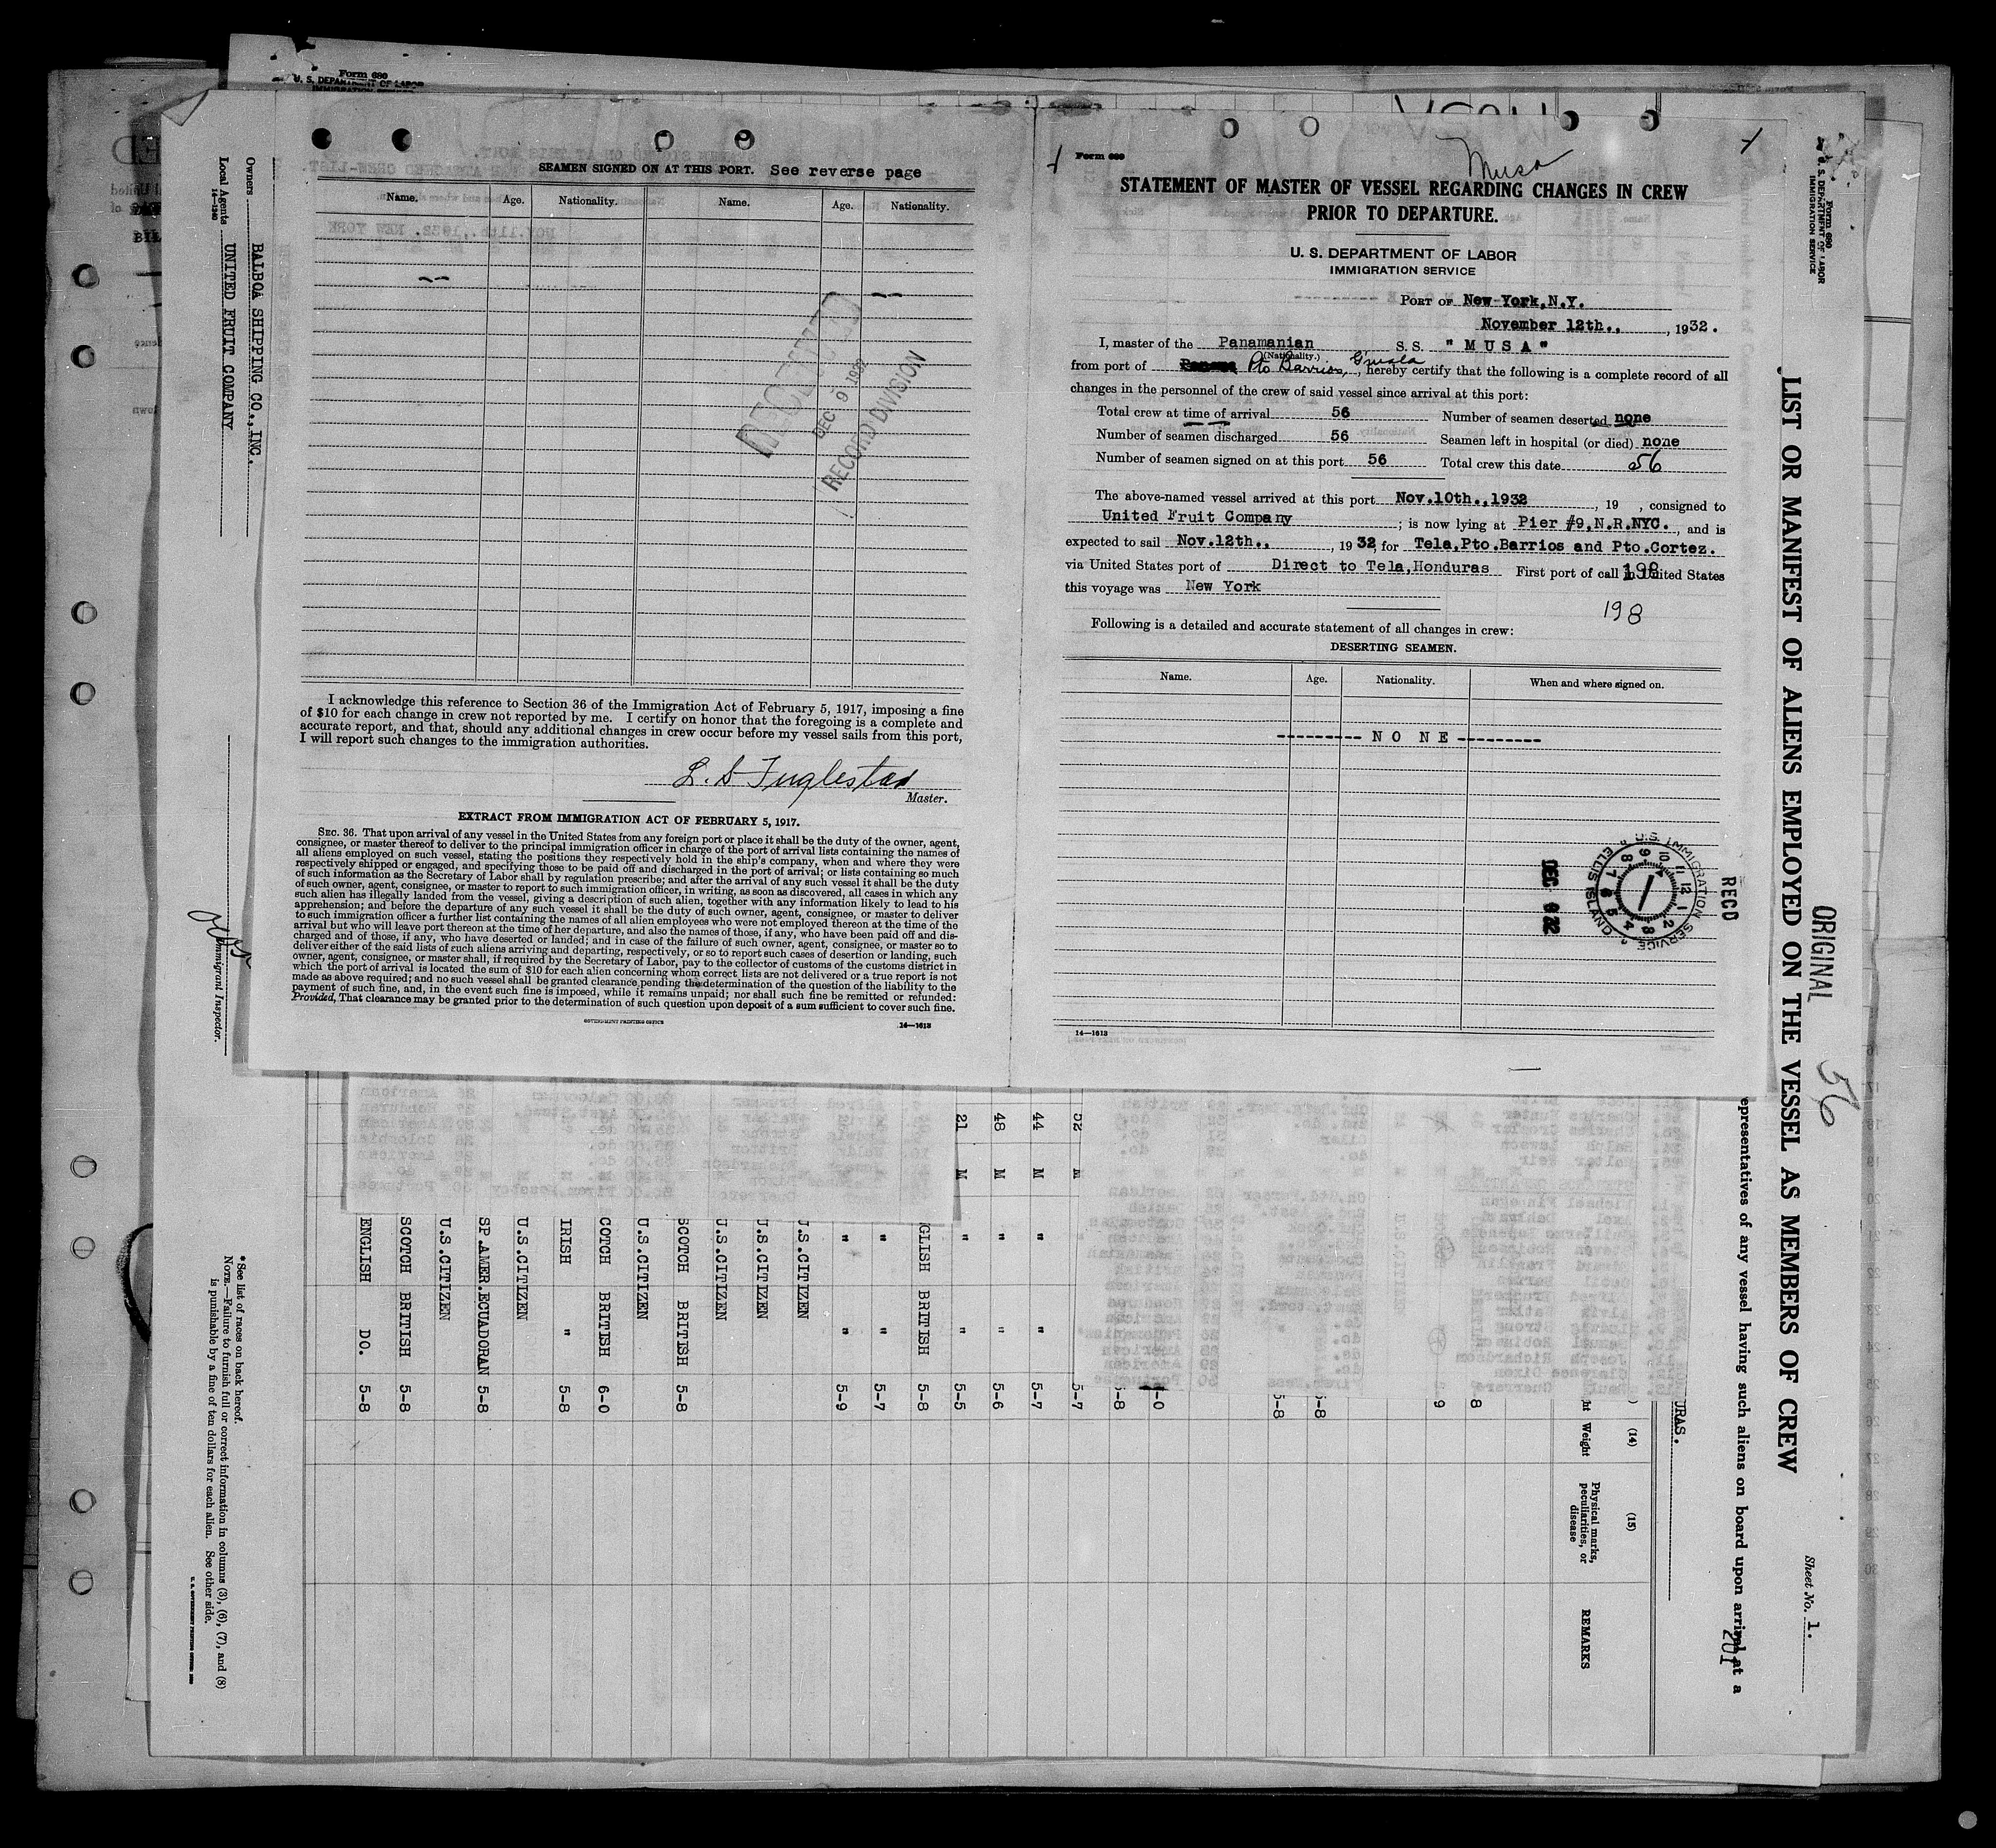 Form 680
U. S. DEPARTMENT OF LABOR
SEAMEN SIGNED ON AT THIS PORT. See reverse page
Name. Age. Nationality. Name. Age. Nationality.
DEC 9 1932
RECORD DIVISION
I acknowledge this reference to Section 36 of the Immigration Act of February 5, 1917, imposing a fine
of $10 for each change in crew not reported by me. I certify on honor that the foregoing is a complete and
accurate report, and that, should any additional changes in crew occur before my vessel sails from this port,
I will report such changes to the immigration authorities.
Master.
EXTRACT FROM IMMIGRATION ACT OF FEBRUARY 5, 1917.
SEC. 36. That upon arrival of any vessel in the United States from any foreign port or place it shall be the duty of the owner, agent,
consignee, or master thereof to deliver to the principal immigration officer in charge of the port of arrival lists containing the names of
all aliens employed on such vessel, stating the positions they respectively hold in the ship's company, when and where they were
respectively shipped or engaged, and specifying those to be paid off and discharged in the port of arrival; or lists containing so much
of such information as the Secretary of Labor shall by regulation prescribe; and after the arrival of any such vessel it shall be the duty
of such owner, agent, consignee, or master to report to such immigration officer, in writing, as soon as discovered, all cases in which any
such alien has illegally landed from the vessel, giving a description of such alien, together with any information likely to lead to his
apprehension; and before the departure of any such vessel it shall be the duty of such owner, agent, consignee, or master to deliver
to such immigration officer a further list containing the names of all alien employees who were not employed thereon at the time of the
arrival but who will leave port thereon at the time of her departure, and also the names of those, if any, who have been paid off and dis-
charged and of those, if any, who have deserted or landed; and in case of the failure of such owner, agent, consignee, or master so to
deliver either of the said lists of such aliens arriving and departing, respectively, or so to report such cases of desertion or landing, such
owner, agent, consignee, or master shall, if required by the Secretary of Labor, pay to the collector of customs of the customs district in
which the port of arrival is located the sum of $10 for each alien concerning whom correct lists are not delivered or a true report is not
made as above required; and no such vessel shall be granted clearance pending the determination of the question of the liability to the
payment of such fine, and, in the event such fine is imposed, while it remains unpaid; nor shall such fine be remitted or refunded:
Provided, That clearance may be granted prior to the determination of such question upon deposit of a sum sufficient to cover such fine.
GOVERNMENT PRINTING OFFICE 14—1613
Form 680
Musa
STATEMENT OF MASTER OF VESSEL REGARDING CHANGES IN CREW
PRIOR TO DEPARTURE.
U. S. DEPARTMENT OF LABOR
IMMIGRATION SERVICE
PORT OF New York, N.Y.
November 12th., , 1932.
I, master of the Panamanian S.S. "MUSA"
(Nationality.)
from port of Pto Barrios, , hereby certify that the following is a complete record of all
changes in the personnel of the crew of said vessel since arrival at this port:
Total crew at time of arrival 56 Number of seamen deserted none
Number of seamen discharged 56 Seamen left in hospital (or died) none
Number of seamen signed on at this port 56 Total crew this date 56
The above-named vessel arrived at this port Nov.10th.,1932 , 19 , consigned to
United Fruit Company ; is now lying at Pier #9,N.R.NYC. , and is
expected to sail Nov.12th., , 1932, for Tela,Pto.Barrios and Pto.Cortez.
via United States port of Direct to Tela,Honduras First port of call in United States
198
this voyage was New York
198
Following is a detailed and accurate statement of all changes in crew:
DESERTING SEAMEN.
Name. Age. Nationality. When and where signed on.
--------- N O N E ---------
RECD
U.S. IMMIGRATION SERVICE ELLIS ISLAND
14—1613
Form 689
U. S. DEPARTMENT OF LABOR
IMMIGRATION SERVICE
ORIGINAL
56
Sheet No. 1.
LIST OR MANIFEST OF ALIENS EMPLOYED ON THE VESSEL AS MEMBERS OF CREW
epresentatives of any vessel having such aliens on board upon arrival at a
201
(14) (15)
Weight
Physical marks, peculiarities, or disease
REMARKS
52 M 5-7
44 M " " 5-7
48 M " " 5-6
21 M " " 5-5
GLISH BRITISH 5-8
" " 5-7
" " 5-9
U.S.CITIZEN
U.S.CITIZEN
U.S.CITIZEN
SCOTCH BRITISH 5-8
U.S.CITIZEN
COTCH BRITISH 6-0
IRISH " 5-8
U.S.CITIZEN
SP.AMER.ECUADORAN 5-8
U.S.CITIZEN
SCOTCH BRITISH 5-8
ENGLISH DO. 5-8
Owners BALBOA SHIPPING CO., INC.
Local Agents UNITED FRUIT COMPANY
14—1240
Immigrant Inspector.
* See list of races on back hereof.
NOTE.—Failure to furnish full or correct information in columns (3), (6), (7), and (8)
is punishable by a fine of ten dollars for each alien. See other side.